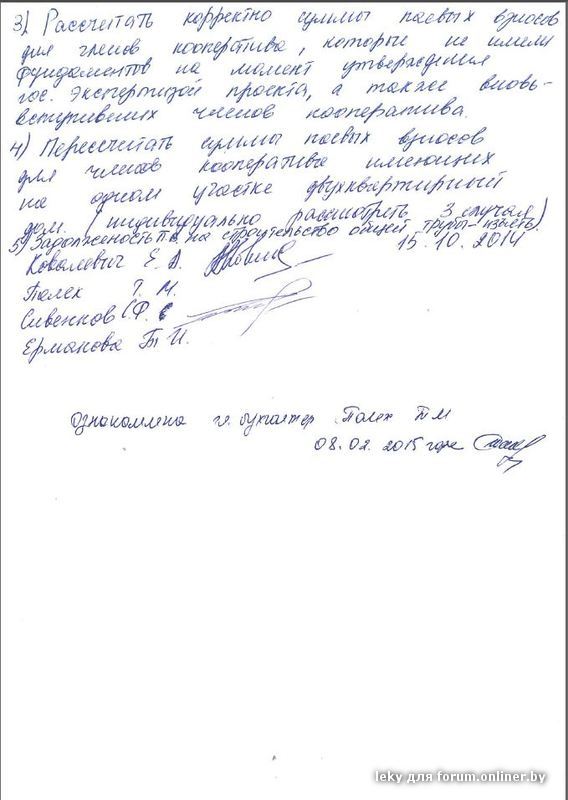 3) Рассчитать корректно суммы паевых взносов
для членов кооператива, которые не имели
фундаментов на момент утверждения
гос. Экспертизой проекта, а также вновь-
вступивших членов кооператива.
4) Пересчитать суммы паевых взносов
для членов кооператива имеющих
на одном участке двухквартирный
дом. (индивидуально рассмотреть 3 случая)
5) Задолженость п.в. на строительство общей трубы-изъять)
15.10.2014
Ковалевич Е. А.
Палех Т. М.
Сивенков С.Ф.
Ерманова Т. И.
Ознакомлена гл. бухгалтер Палех ТМ
08.02.2015 года
leky для forum.onliner.by